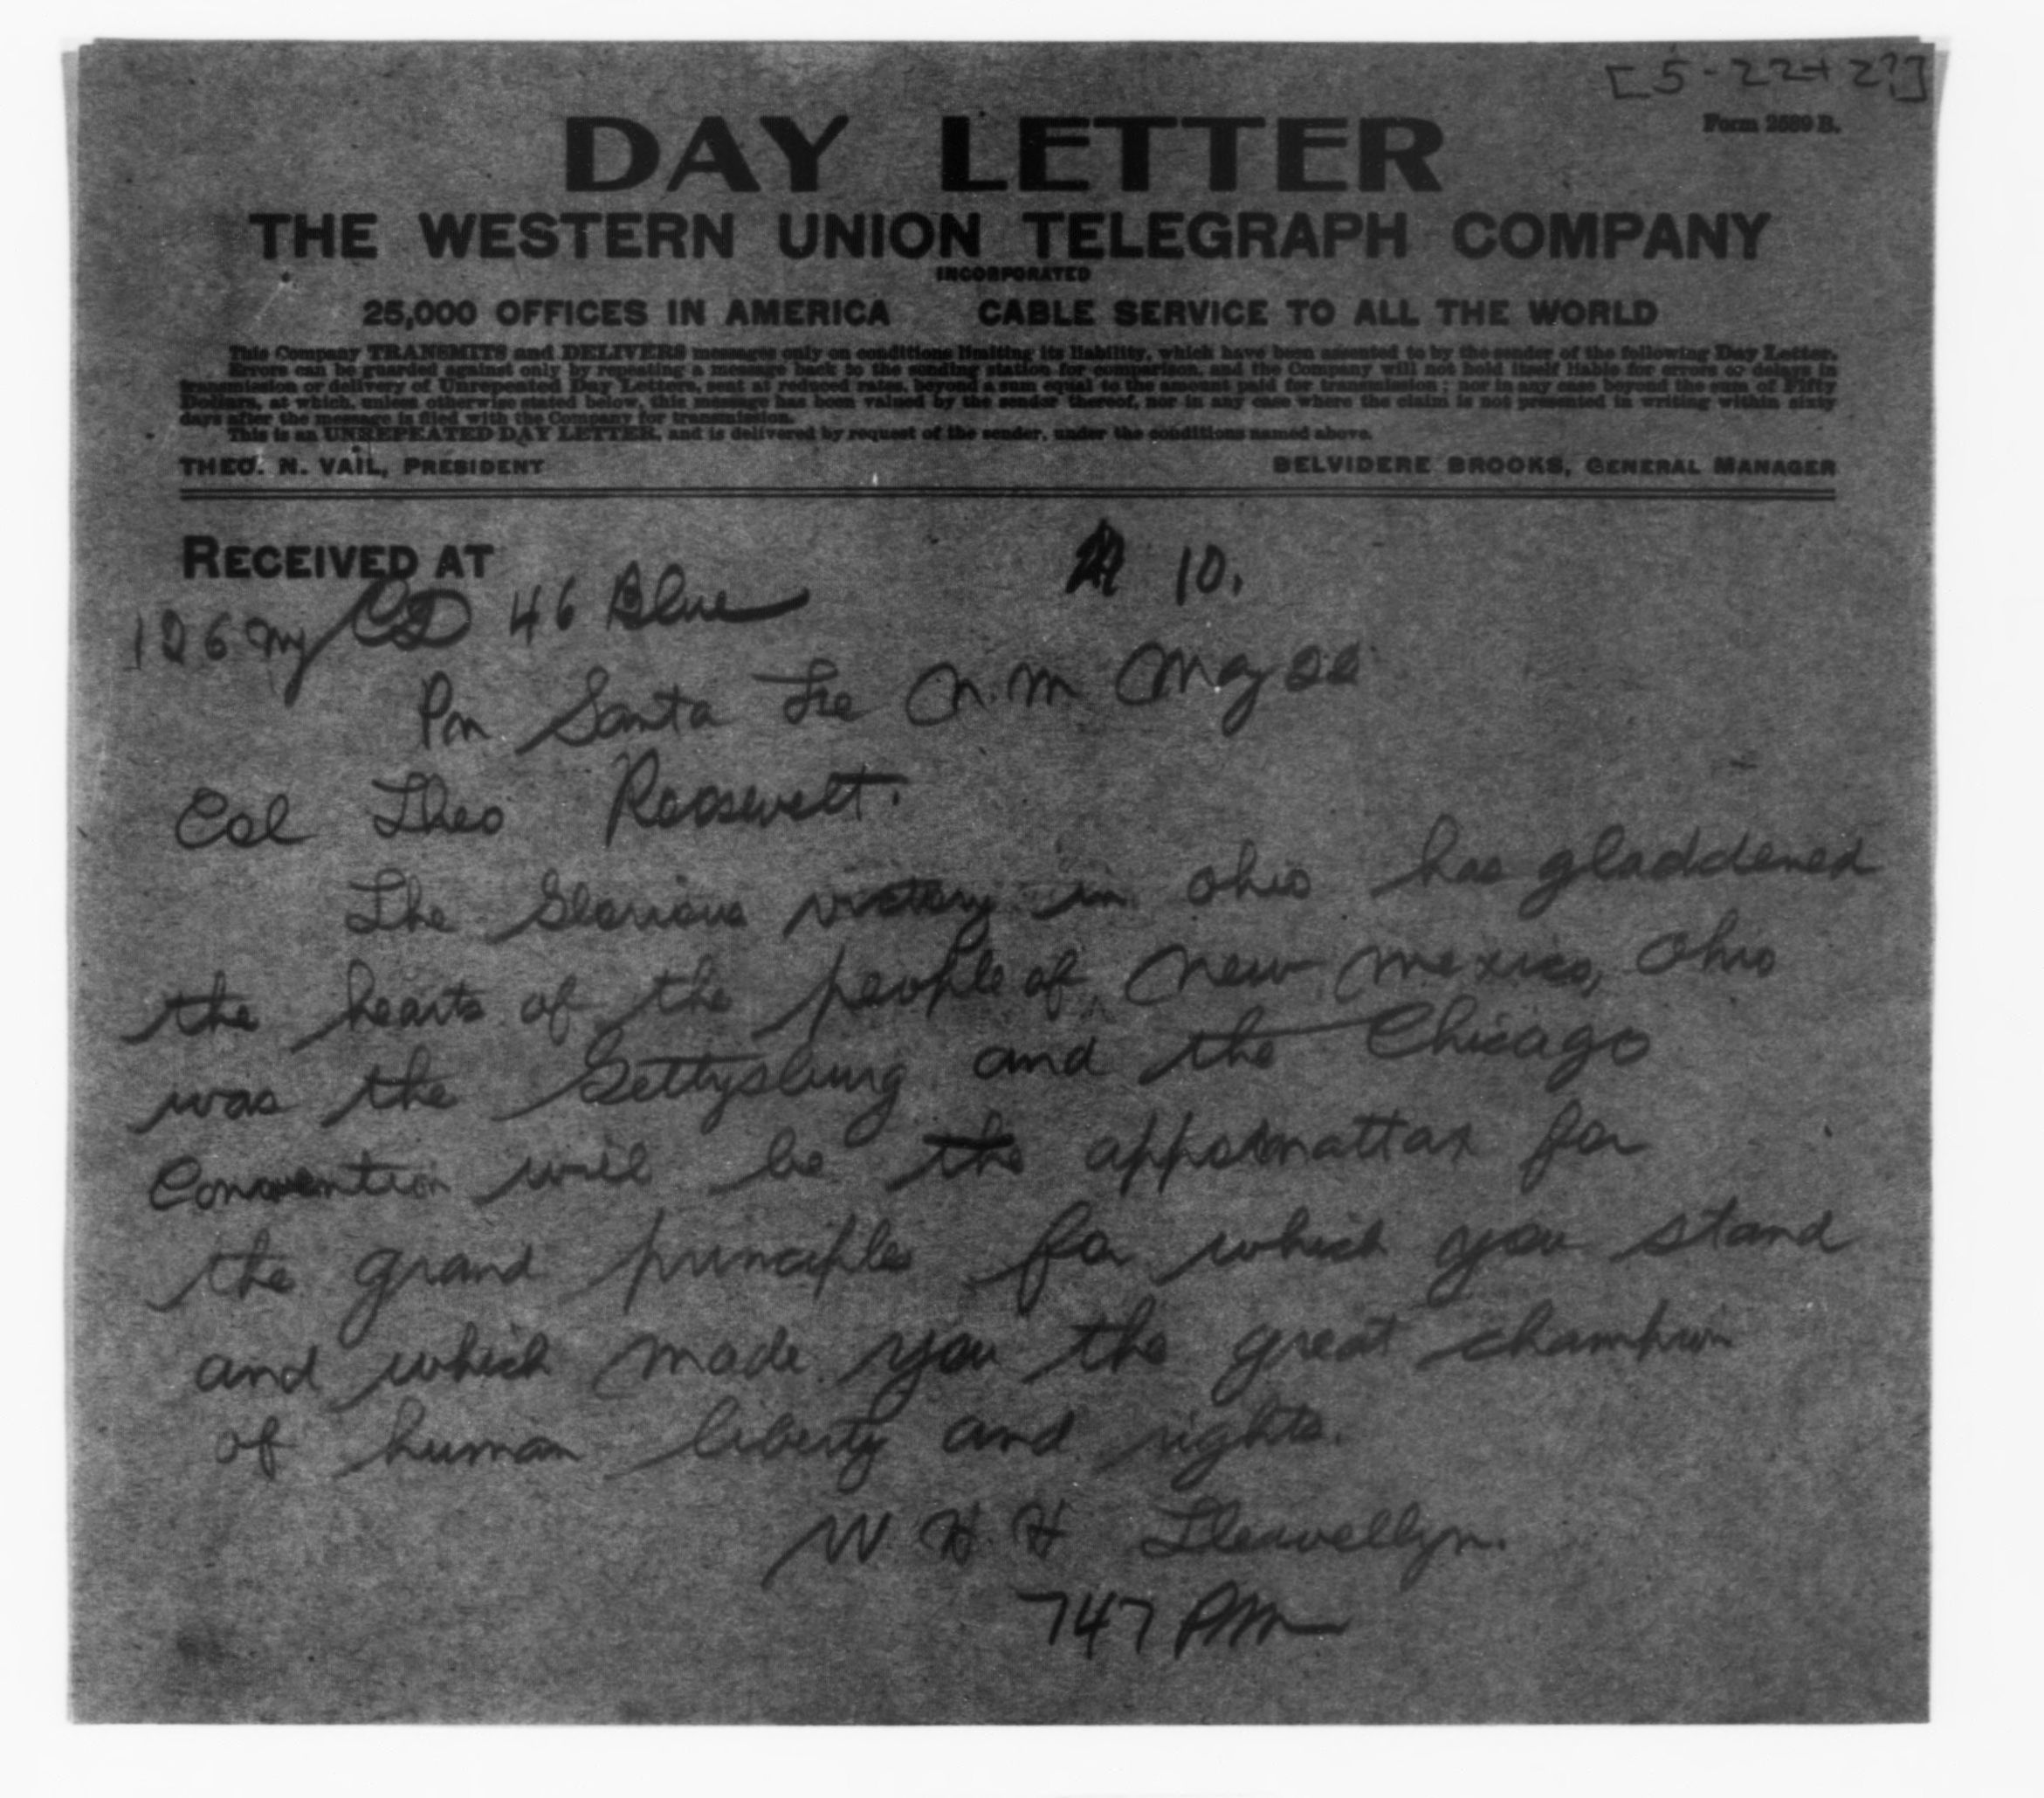 [5-22-12?]
Form 2589 B.
DAY LETTER
THE WESTERN UNION TELEGRAPH COMPANY
INCORPORATED
25,000 OFFICES IN AMERICA CABLE SERVICE TO ALL THE WORLD
This Company TRANSMITS and DELIVERS messages only on conditions limiting its liability, which have been assented to by the sender of the following Day Letter.
Errors can be guarded against only by repeating a message back to the sending station for comparison, and the Company will not hold itself liable for errors or delays in
transmission or delivery of Unrepeated Day Letters, sent at reduced rates, beyond a sum equal to the amount paid for transmission; nor in any case beyond the sum of Fifty
Dollars, at which, unless otherwise stated below, this message has been valued by the sender thereof, nor in any case where the claim is not presented in writing within sixty
days after the message is filed with the Company for transmission.
This is an UNREPEATED DAY LETTER, and is delivered by request of the sender, under the conditions named above.
THEO. N. VAIL, PRESIDENT BELVIDERE BROOKS, GENERAL MANAGER
RECEIVED AT
10.
126 Ny CD 46 Blue
Pm Santa Fe N.M May 22
Col Theo Roosevelt.
The Glorious victory in Ohio has gladdened
the hearts of the people of New Mexico, Ohio
was the Gettysburg and the Chicago
Convention will be the appomattax for
the grand principles for which you stand
and which made you the great champion
of human liberty and rights.
W. H. H Llewellyn.
747 PM